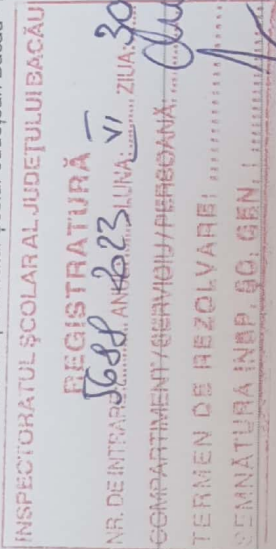 INSPECTORATUL ȘCOLAR AL JUDEȚULUI BACĂU
REGISTRATURĂ
NR. DE INTRARE 5688 ANUL 2023 LUNA: VI ZIUA: 30
COMPARTIMENT / SERVICIU / PERSOANĂ:
TERMEN DE REZOLVARE:
SEMNĂTURA INSP. ȘC. GEN.